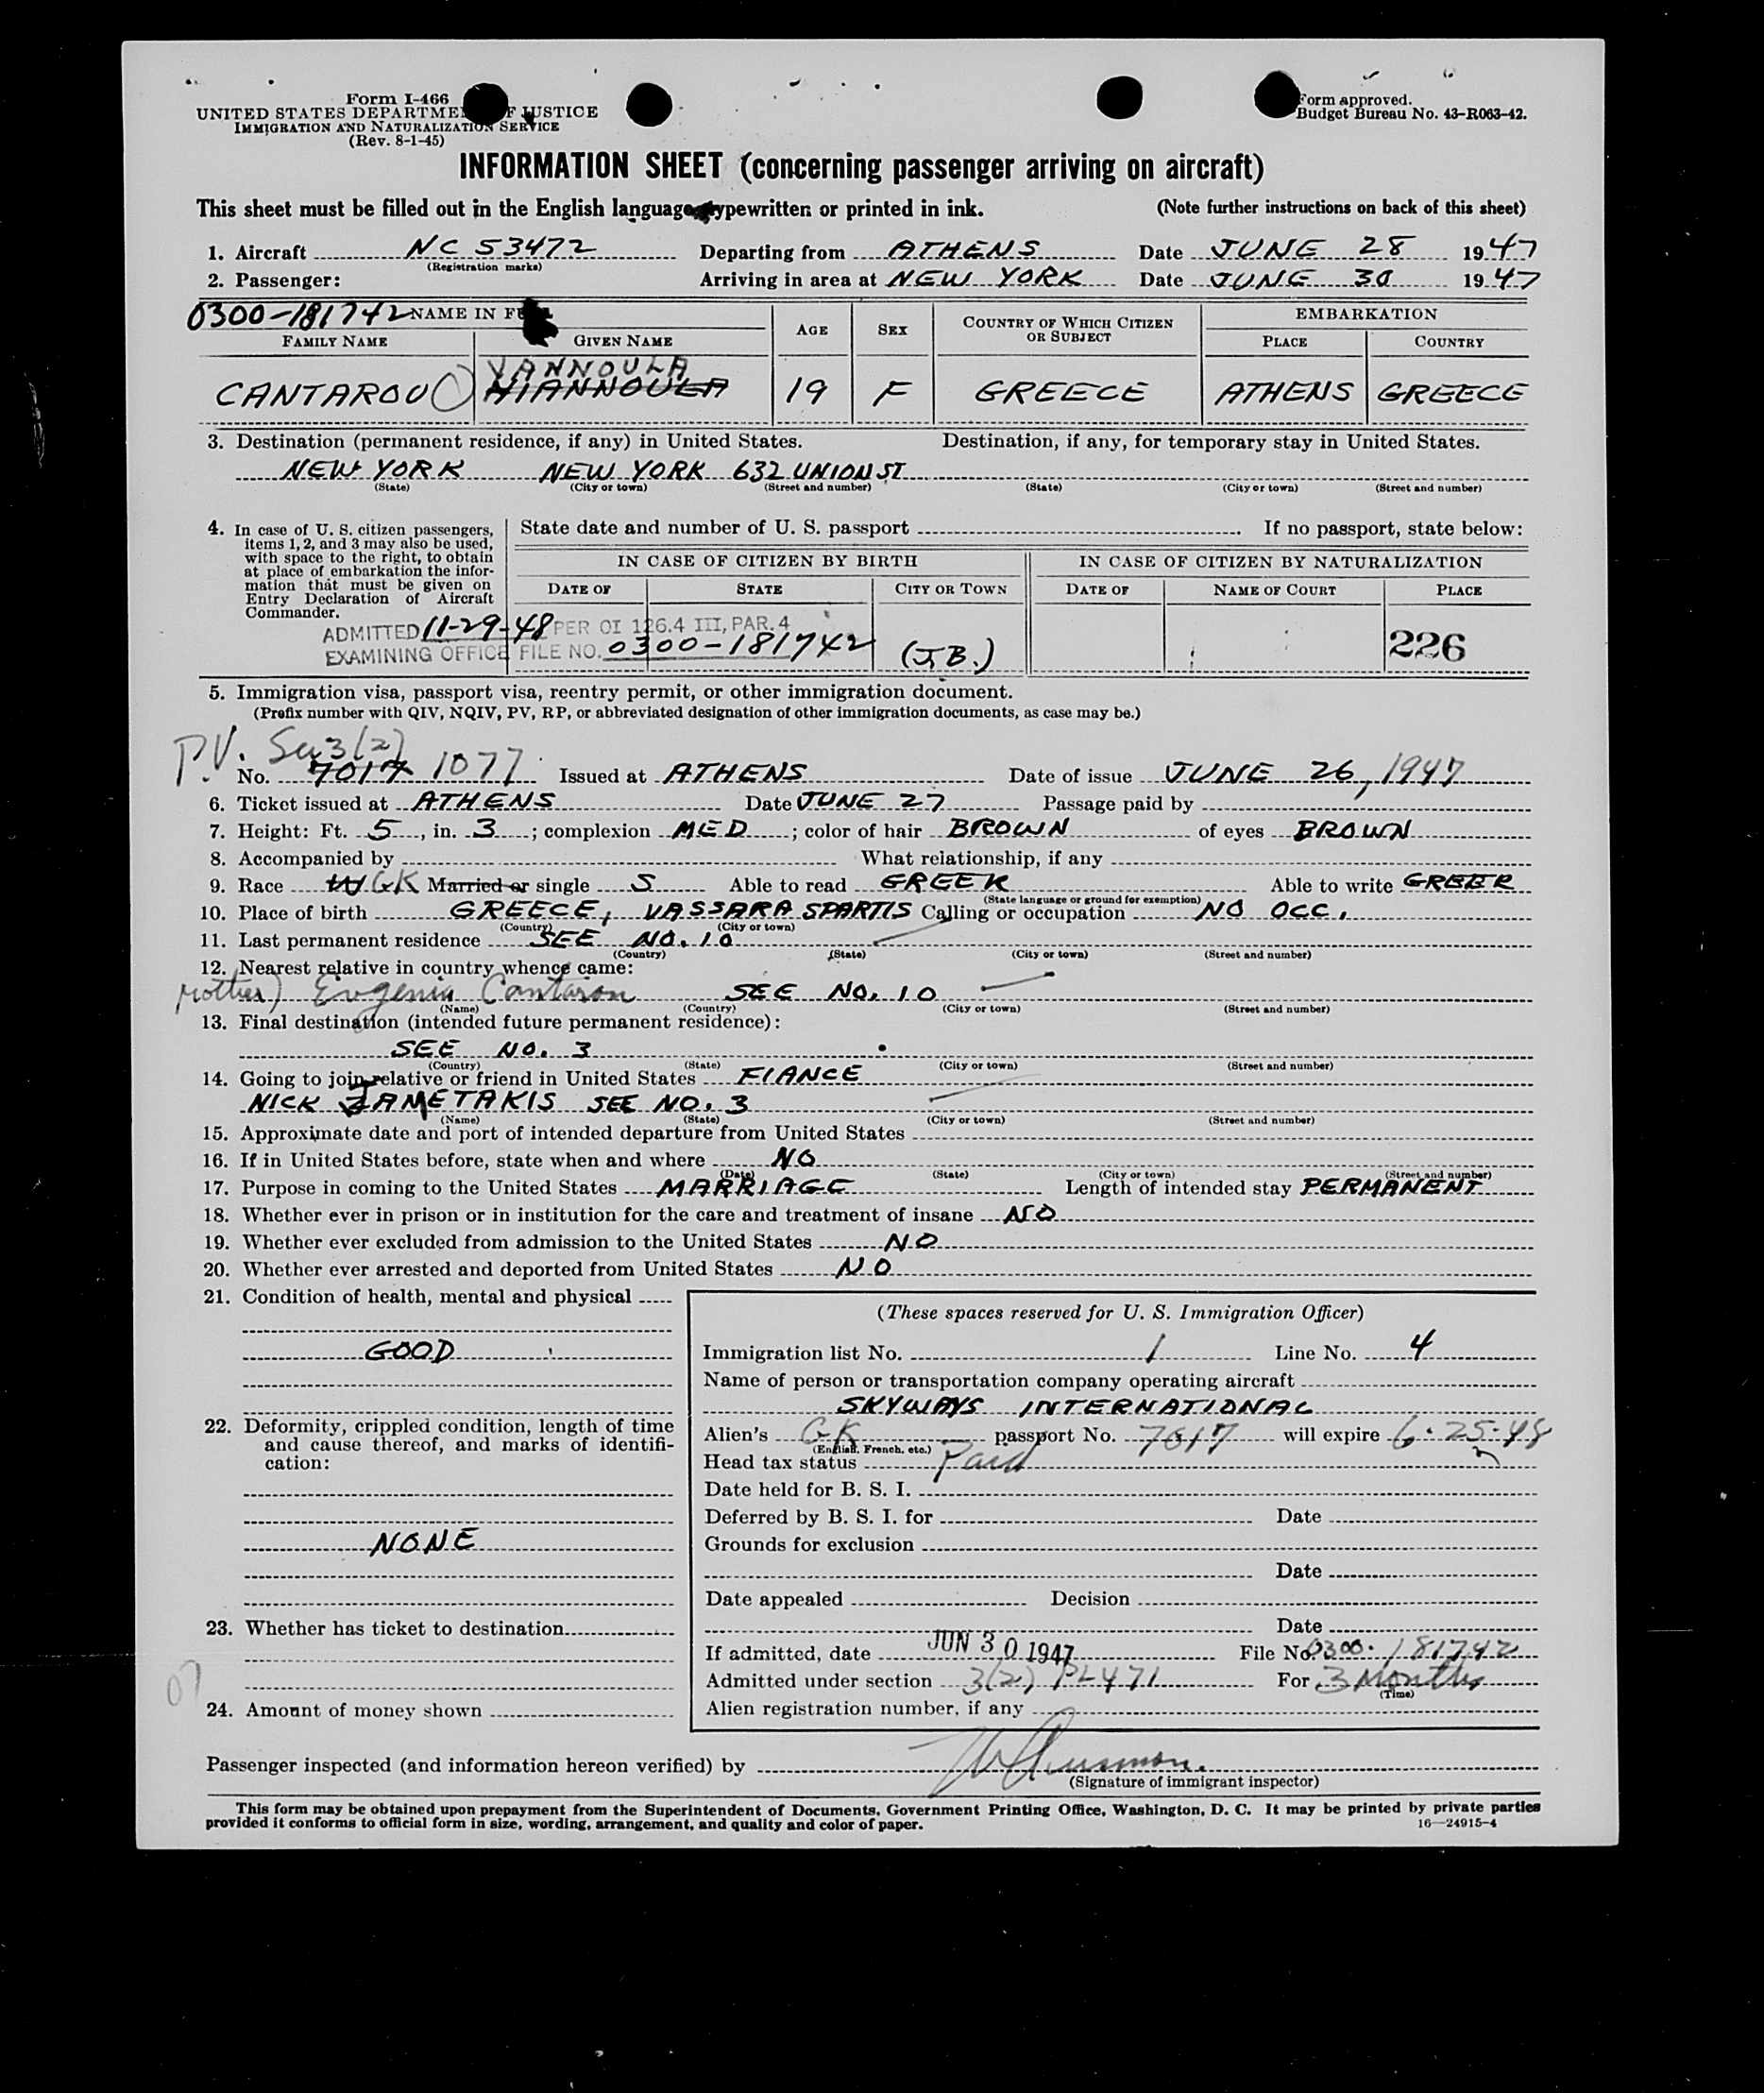 Form I-466
UNITED STATES DEPARTMENT OF JUSTICE
IMMIGRATION AND NATURALIZATION SERVICE
(Rev. 8-1-45)
Form approved.
Budget Bureau No. 43-R063-42.
INFORMATION SHEET (concerning passenger arriving on aircraft)
This sheet must be filled out in the English language typewritten or printed in ink. (Note further instructions on back of this sheet)
1. Aircraft NC 53472 Departing from ATHENS Date JUNE 28 1947
(Registration marks)
2. Passenger: Arriving in area at NEW YORK Date JUNE 30 1947
0300-181742 NAME IN FULL AGE SEX COUNTRY OF WHICH CITIZEN OR SUBJECT EMBARKATION
FAMILY NAME GIVEN NAME PLACE COUNTRY
YANNOULA
CANTAROU NIANNOULA 19 F GREECE ATHENS GREECE
3. Destination (permanent residence, if any) in United States. Destination, if any, for temporary stay in United States.
NEW YORK NEW YORK 632 UNION ST
(State) (City or town) (Street and number) (State) (City or town) (Street and number)
4. In case of U. S. citizen passengers, items 1, 2, and 3 may also be used, with space to the right, to obtain at place of embarkation the information that must be given on Entry Declaration of Aircraft Commander.
State date and number of U. S. passport If no passport, state below:
IN CASE OF CITIZEN BY BIRTH IN CASE OF CITIZEN BY NATURALIZATION
DATE OF STATE CITY OR TOWN DATE OF NAME OF COURT PLACE
ADMITTED 11-29-48 PER OI 126.4 III, PAR. 4
EXAMINING OFFICE FILE NO. 0300-181742 (J.B.) 226
5. Immigration visa, passport visa, reentry permit, or other immigration document.
(Prefix number with QIV, NQIV, PV, RP, or abbreviated designation of other immigration documents, as case may be.)
P.V. Sec 3(2)
No. 7017 1077 Issued at ATHENS Date of issue JUNE 26, 1947
6. Ticket issued at ATHENS Date JUNE 27 Passage paid by
7. Height: Ft. 5, in. 3; complexion MED; color of hair BROWN of eyes BROWN
8. Accompanied by What relationship, if any
9. Race W GK Married or single S Able to read GREEK Able to write GREEK
(State language or ground for exemption)
10. Place of birth GREECE, VASSARA SPARTIS Calling or occupation NO OCC.
(Country) (City or town)
11. Last permanent residence SEE NO. 10
(Country) (State) (City or town) (Street and number)
12. Nearest relative in country whence came:
Mother) Evgenia Cantarou SEE NO. 10
(Name) (Country) (City or town) (Street and number)
13. Final destination (intended future permanent residence):
SEE NO. 3
(Country) (State) (City or town) (Street and number)
14. Going to join relative or friend in United States FIANCE
NICK JAMETAKIS SEE NO. 3
(Name) (State) (City or town) (Street and number)
15. Approximate date and port of intended departure from United States
16. If in United States before, state when and where NO
(Date) (State) (City or town) (Street and number)
17. Purpose in coming to the United States MARRIAGE Length of intended stay PERMANENT
18. Whether ever in prison or in institution for the care and treatment of insane NO
19. Whether ever excluded from admission to the United States NO
20. Whether ever arrested and deported from United States NO
21. Condition of health, mental and physical
GOOD
22. Deformity, crippled condition, length of time and cause thereof, and marks of identification:
NONE
23. Whether has ticket to destination
07
24. Amount of money shown
(These spaces reserved for U. S. Immigration Officer)
Immigration list No. 1 Line No. 4
Name of person or transportation company operating aircraft
SKYWAYS INTERNATIONAL
Alien's GK passport No. 7017 will expire 6-25-48
(English, French, etc.)
Head tax status Paid
Date held for B. S. I.
Deferred by B. S. I. for Date
Grounds for exclusion
Date
Date appealed Decision
Date
If admitted, date JUN 30 1947 File No. 0300-181742
Admitted under section 3(2) PL 471 For 3 Months
(Time)
Alien registration number, if any
Passenger inspected (and information hereon verified) by
(Signature of immigrant inspector)
This form may be obtained upon prepayment from the Superintendent of Documents, Government Printing Office, Washington, D. C. It may be printed by private parties
provided it conforms to official form in size, wording, arrangement, and quality and color of paper. 16—24915-4